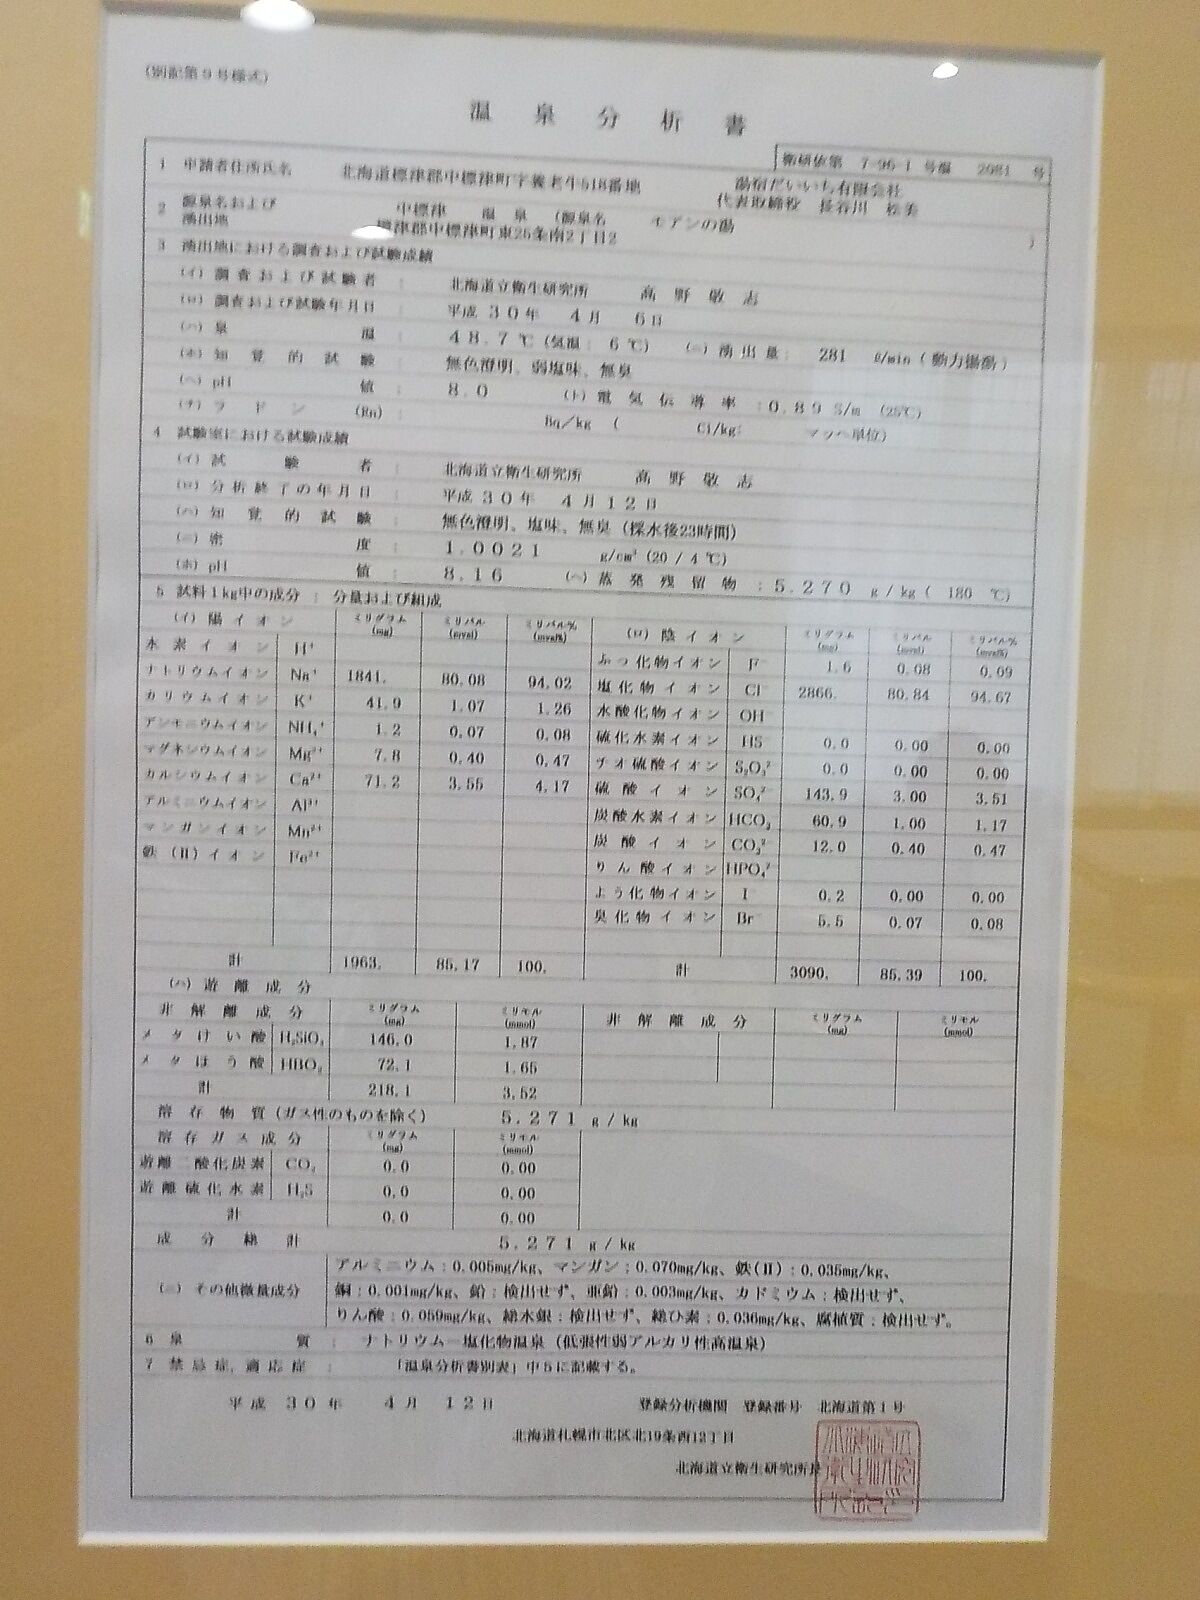 (別記第9号様式)
温泉分析書
衛研依第 7-96-1 号 2081 号
1 申請者住所氏名 北海道標津郡中標津町字養老牛518番地 湯宿だいいち有限会社
代表取締役 長谷川 松美
2 源泉名および湧出地 中標津 温泉 (源泉名 モアンの湯 )
標津郡中標津町東25条南2丁目2
3 湧出地における調査および試験成績
(イ) 調査および試験者 : 北海道立衛生研究所 高野敬志
(ロ) 調査および試験年月日 : 平成30年 4月 6日
(ハ) 泉温 : 48.7℃ (気温: 6℃) (ニ) 湧出量: 281 ℓ/min (動力揚湯)
(ホ) 知覚的試験 : 無色澄明、弱塩味、無臭
(ヘ) pH値 : 8.0 (ト) 電気伝導率 : 0.89 S/m (25℃)
(チ) ラドン (Rn) : Bq/kg ( Ci/kg: マッヘ単位)
4 試験室における試験成績
(イ) 試験者 : 北海道立衛生研究所 高野敬志
(ロ) 分析終了の年月日 : 平成30年 4月12日
(ハ) 知覚的試験 : 無色澄明、塩味、無臭 (採水後23時間)
(ニ) 密度 : 1.0021 g/cm³ (20/4℃)
(ホ) pH値 : 8.16 (ヘ) 蒸発残留物 : 5.270 g/kg ( 180 ℃)
5 試料1kg中の成分 : 分量および組成
(イ) 陽イオン ミリグラム (mg) ミリバル (mval) ミリバル% (mval%) (ロ) 陰イオン ミリグラム (mg) ミリバル (mval) ミリバル% (mval%)
水素イオン H⁺ ふっ化物イオン F⁻ 1.6 0.08 0.09
ナトリウムイオン Na⁺ 1841. 80.08 94.02 塩化物イオン Cl⁻ 2866. 80.84 94.67
カリウムイオン K⁺ 41.9 1.07 1.26 水酸化物イオン OH⁻
アンモニウムイオン NH₄⁺ 1.2 0.07 0.08 硫化水素イオン HS⁻ 0.0 0.00 0.00
マグネシウムイオン Mg²⁺ 7.8 0.40 0.47 チオ硫酸イオン S₂O₃²⁻ 0.0 0.00 0.00
カルシウムイオン Ca²⁺ 71.2 3.55 4.17 硫酸イオン SO₄²⁻ 143.9 3.00 3.51
アルミニウムイオン Al³⁺ 炭酸水素イオン HCO₃⁻ 60.9 1.00 1.17
マンガンイオン Mn²⁺ 炭酸イオン CO₃²⁻ 12.0 0.40 0.47
鉄(II)イオン Fe²⁺ りん酸イオン HPO₄²⁻
よう化物イオン I⁻ 0.2 0.00 0.00
臭化物イオン Br⁻ 5.5 0.07 0.08
計 1963. 85.17 100. 計 3090. 85.39 100.
(ハ) 遊離成分
非解離成分 ミリグラム (mg) ミリモル (mmol) 非解離成分 ミリグラム (mg) ミリモル (mmol)
メタけい酸 H₂SiO₃ 146.0 1.87
メタほう酸 HBO₂ 72.1 1.65
計 218.1 3.52
溶存物質(ガス性のものを除く) 5.271 g/kg
溶存ガス成分 ミリグラム (mg) ミリモル (mmol)
遊離二酸化炭素 CO₂ 0.0 0.00
遊離硫化水素 H₂S 0.0 0.00
計 0.0 0.00
成分総計 5.271 g/kg
(ニ) その他微量成分 アルミニウム:0.005mg/kg、マンガン:0.070mg/kg、鉄(II):0.035mg/kg、
銅:0.001mg/kg、鉛:検出せず、亜鉛:0.003mg/kg、カドミウム:検出せず、
りん酸:0.059mg/kg、総水銀:検出せず、総ひ素:0.036mg/kg、腐植質:検出せず。
6 泉質 : ナトリウム-塩化物温泉 (低張性弱アルカリ性高温泉)
7 禁忌症、適応症 : 「温泉分析書別表」中5に記載する。
平成30年 4月12日 登録分析機関 登録番号 北海道第1号
北海道札幌市北区北19条西12丁目
北海道立衛生研究所長